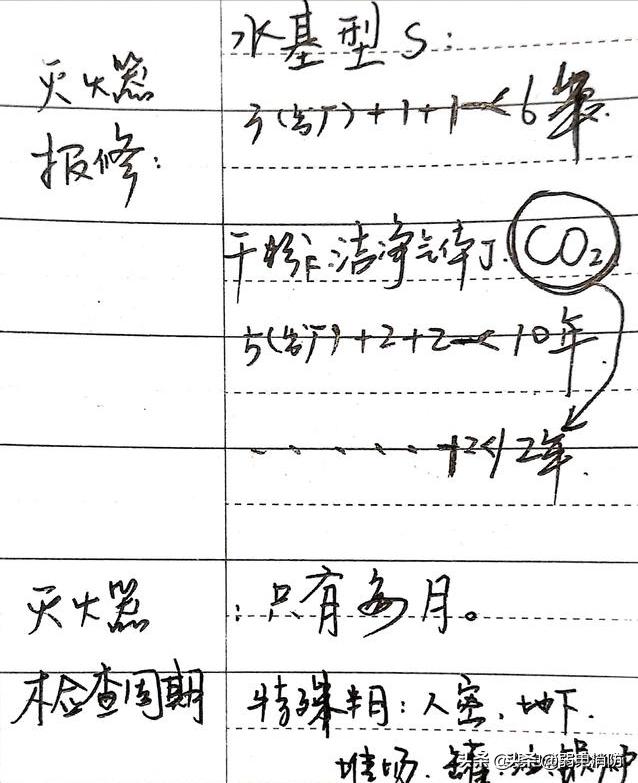 灭火器
报修：
水基型S：
3(出厂)+1+1<6年.
干粉F.洁净气体J.CO₂
5(出厂)+2+2<10年
. . . . . +2<12年.
灭火器
检查周期
：只有每月。
特殊半月：人密、地下.
堆场.罐.
头条@弱电消防